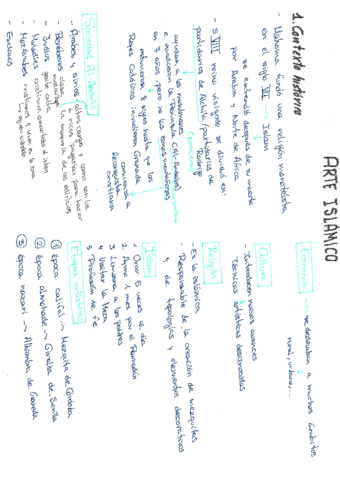 ARTE ISLAMICO
1. Contexto histórico
- Mahoma funda una religión monoteísta
en el siglo VII → Islam
se extendió después de su muerte
por Arabia y Norte de África
- S. VIII reino visigodo se dividió en:
partidarios de Witiza / partidarios de
Rodrigo
ayudan a los musulmanes
a invadir la Península (Al-Andalus)
en 7 años, pero a los reinos
estuvieron 8 siglos hasta que los
Reyes Católicos invadieron Granada
Reconquista
cristiana
Sociedad Al-Andalus
- Árabes y sirios: altos cargos y como son los
+ ricos para hacer
- Bereberes: clase la mayoría de los edificios
media/baja
- Judíos
gente culta
- Muladíes: cristianos convertidos al islam
- Mozárabes: cristianos q viven en la zona
y siguen siéndolo
- Esclavos
Economía → se dedicaban a muchos ámbitos
rural, urbano, ...
Cultura
- Introducen nuevos avances
- Técnicas artísticas desconocidas
Religión
- Es la islámica
- Responsable de la creación de mezquitas
y de tipologías y elementos decorativos
Islam
1. Orar 5 veces al día
2. Ayuno 1 mes por el Ramadán
3. Limosna a los pobres
4. Visitar la Meca
5. Profesión de fe
Etapas artísticas
① época califal → Mezquita de Córdoba
② época almohade → Giralda de Sevilla
③ época nazarí → Alhambra de Granada